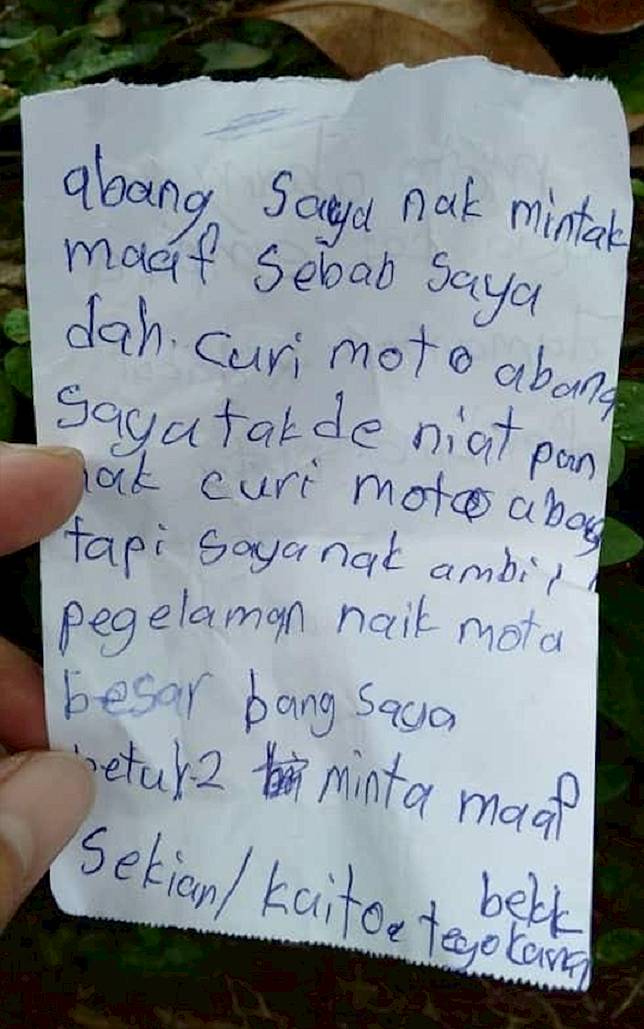 abang saya nak mintak
maaf sebab saya
dah. curi moto abang
saya takde niat pon
nak curi moto abang
tapi saya nak ambil
pegelaman naik moto
besar bang saya
betul2 minta maaf
Sekian/kaito
bekk